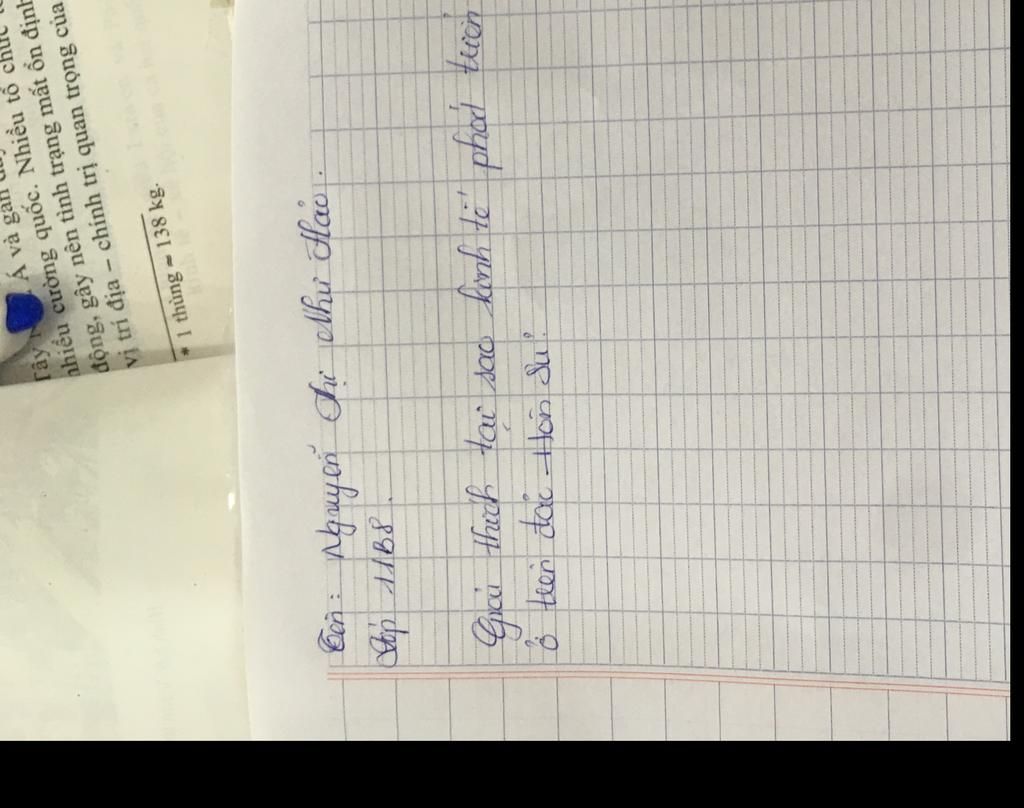 Á và gần đây
Tây
nhiều cường quốc. Nhiều tổ chức
động, gây nên tình trạng mất ổn định
vị trí địa – chính trị quan trọng của
* 1 thùng = 138 kg.
Tên: Nguyễn Thị Như Hảo.
Lớp 11B8.
Giải thích tại sao kinh tế phát triển
ở trên đảo Hôn Su?